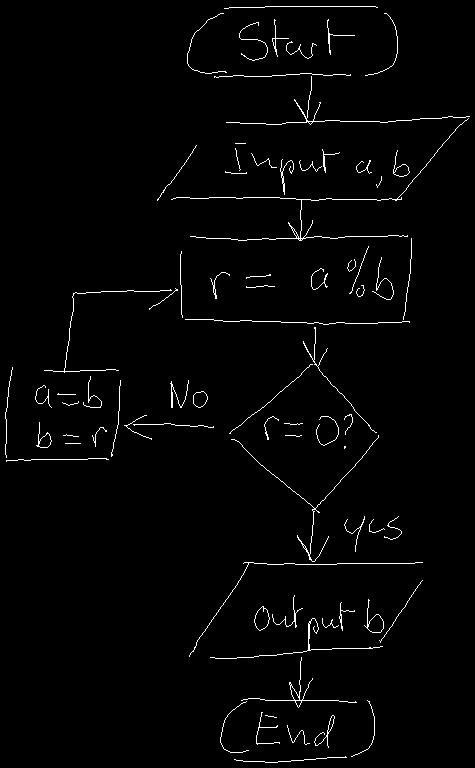 Start
Input a, b
r = a % b
r = 0?
No
a = b
b = r
yes
output b
End